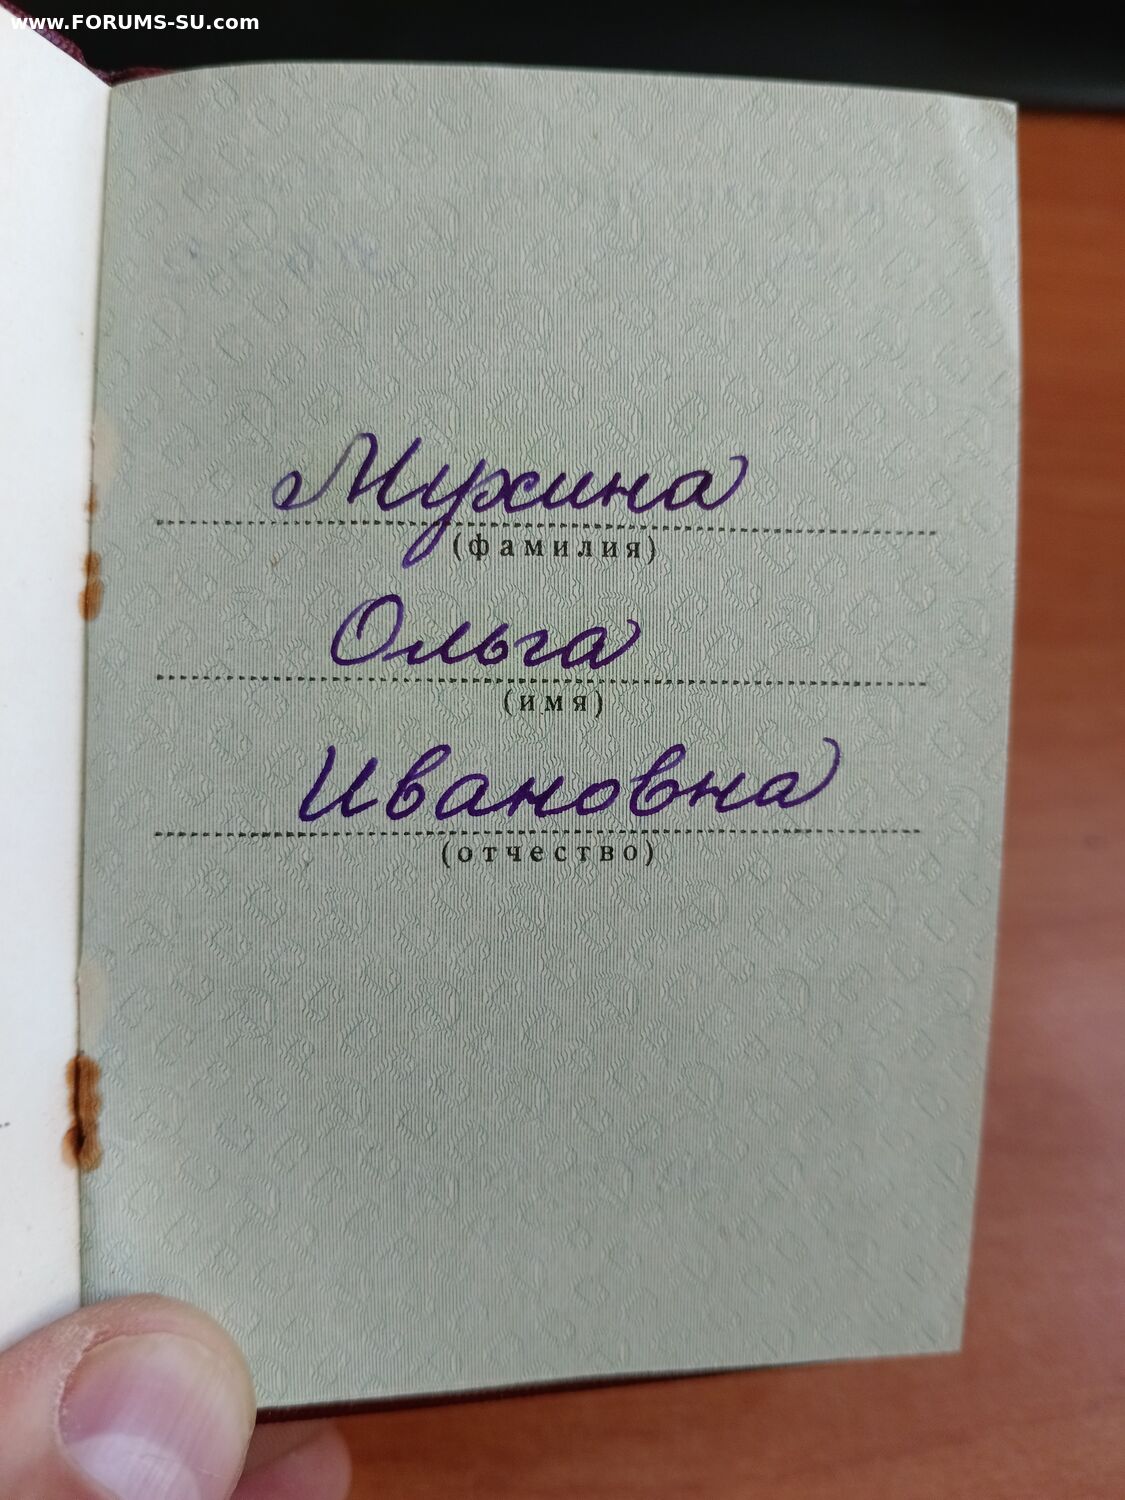 www.FORUMS-SU.com
Мухина
(фамилия)
Ольга
(имя)
Ивановна
(отчество)